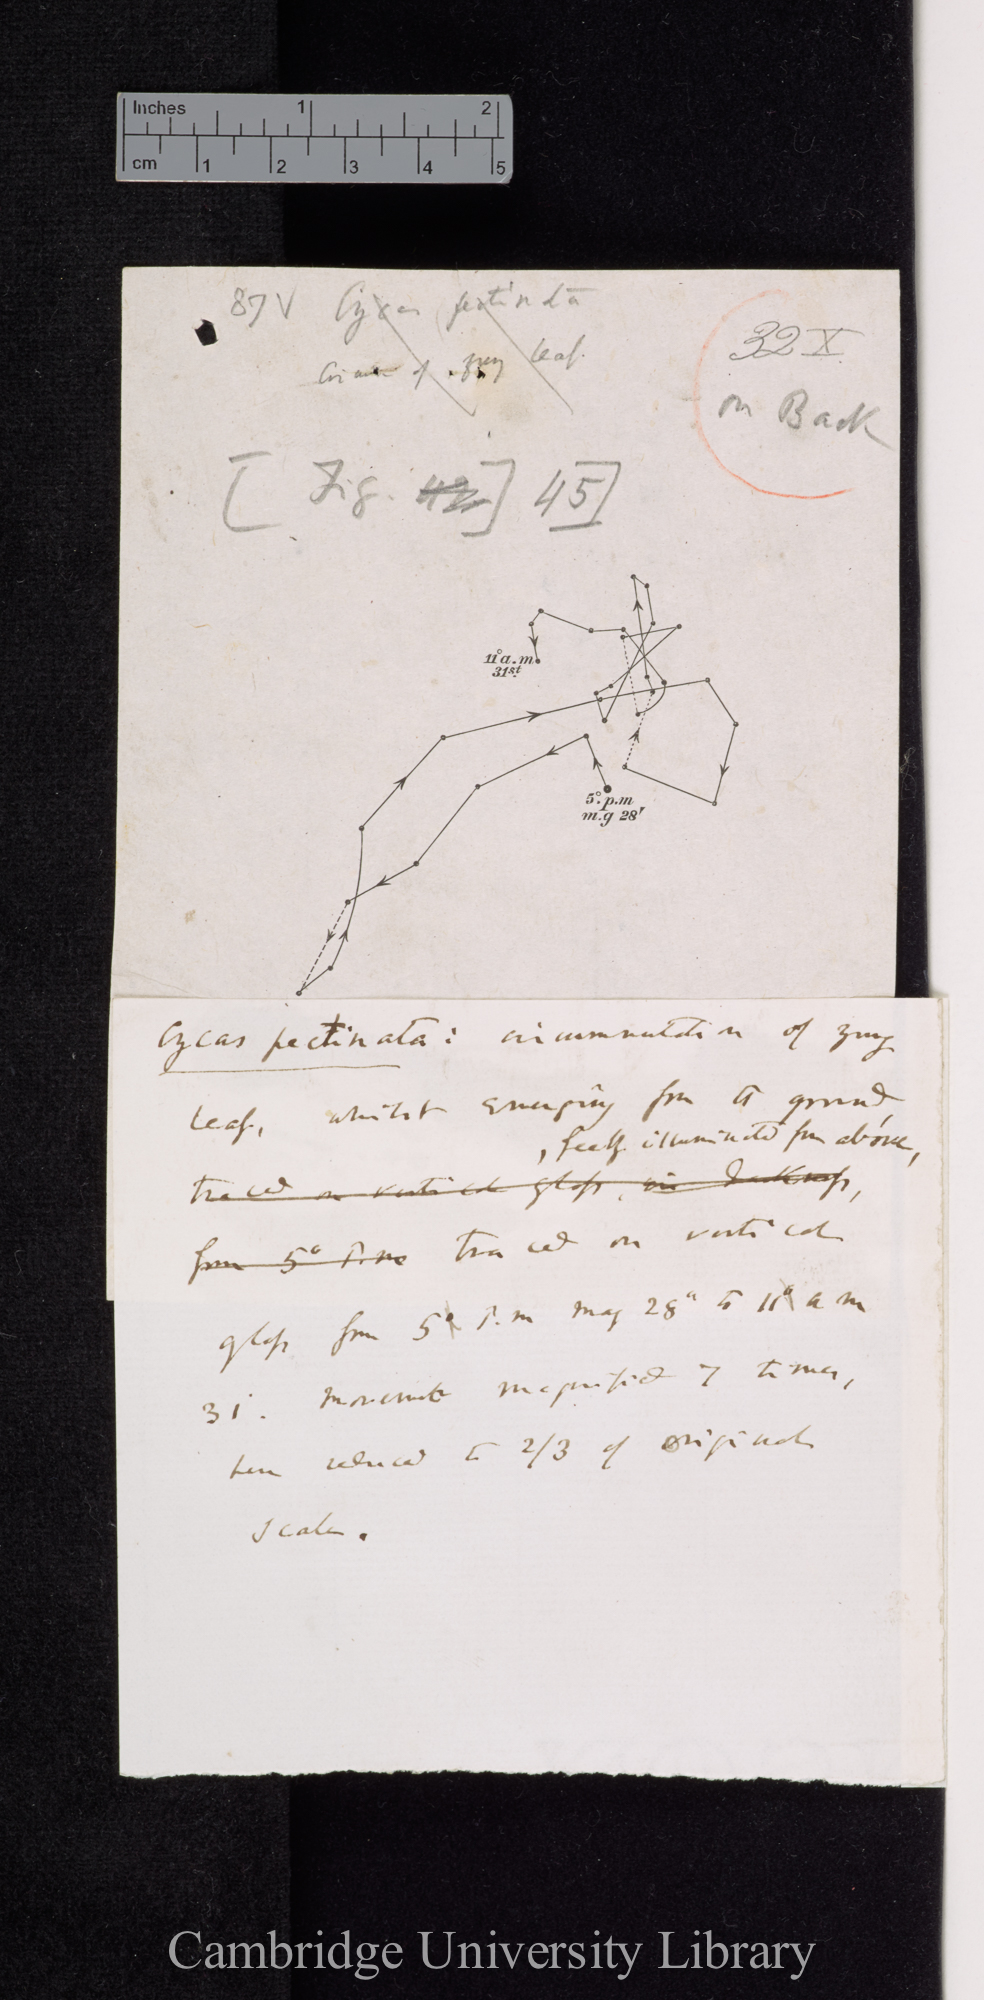 Inches 1 2
cm 1 2 3 4 5
87 V Cycas pectinata
Circum of young leaf.
32 X
on Back
[Fig. 42] 45]
11° a.m.
31st
5° p.m
m.g 28'
Cycas pectinata: circumnutation of young
leaf, whilst emerging from the ground,
, feebly illuminated from above,
traced on vertical glass, in darkness,
from 5° P.m traced on vertical
glass from 5° P.m May 28° to 11° a m
31. Movement magnified 7 times,
here reduced to 2/3 of original
scale.
Cambridge University Library